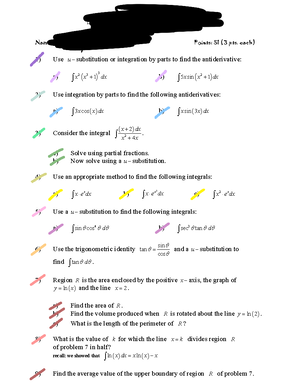 Points: 51 (3 pts. each)
1) Use u – substitution or integration by parts to find the antiderivative:
a) ∫x²(x³+1)⁵dx b) ∫5x sin(x²+1)dx
2) Use integration by parts to find the following antiderivatives:
a) ∫3x cos(x)dx b) ∫x sin(3x)dx
3) Consider the integral ∫(x+2)dx / x²+4x .
a) Solve using partial fractions.
b) Now solve using a u – substitution.
4) Use an appropriate method to find the following integrals:
a) ∫x·eˣdx b) ∫x·eˣ²dx c) ∫x²·eˣdx
5) Use a u – substitution to find the following integrals:
a) ∫sinθcos⁴θdθ b) ∫sec²θtanθdθ
6) Use the trigonometric identity tanθ = sinθ/cosθ and a u – substitution to
find ∫tanθdθ .
7) Region R is the area enclosed by the positive x – axis, the graph of
y = ln(x) and the line x = 2 .
a) Find the area of R .
b) Find the volume produced when R is rotated about the line y = ln(2) .
c) What is the length of the perimeter of R ?
8) What is the value of k for which the line x = k divides region R
of problem 7 in half?
recall: we showed that ∫ln(x)dx = x ln(x) – x
9) Find the average value of the upper boundary of region R of problem 7.